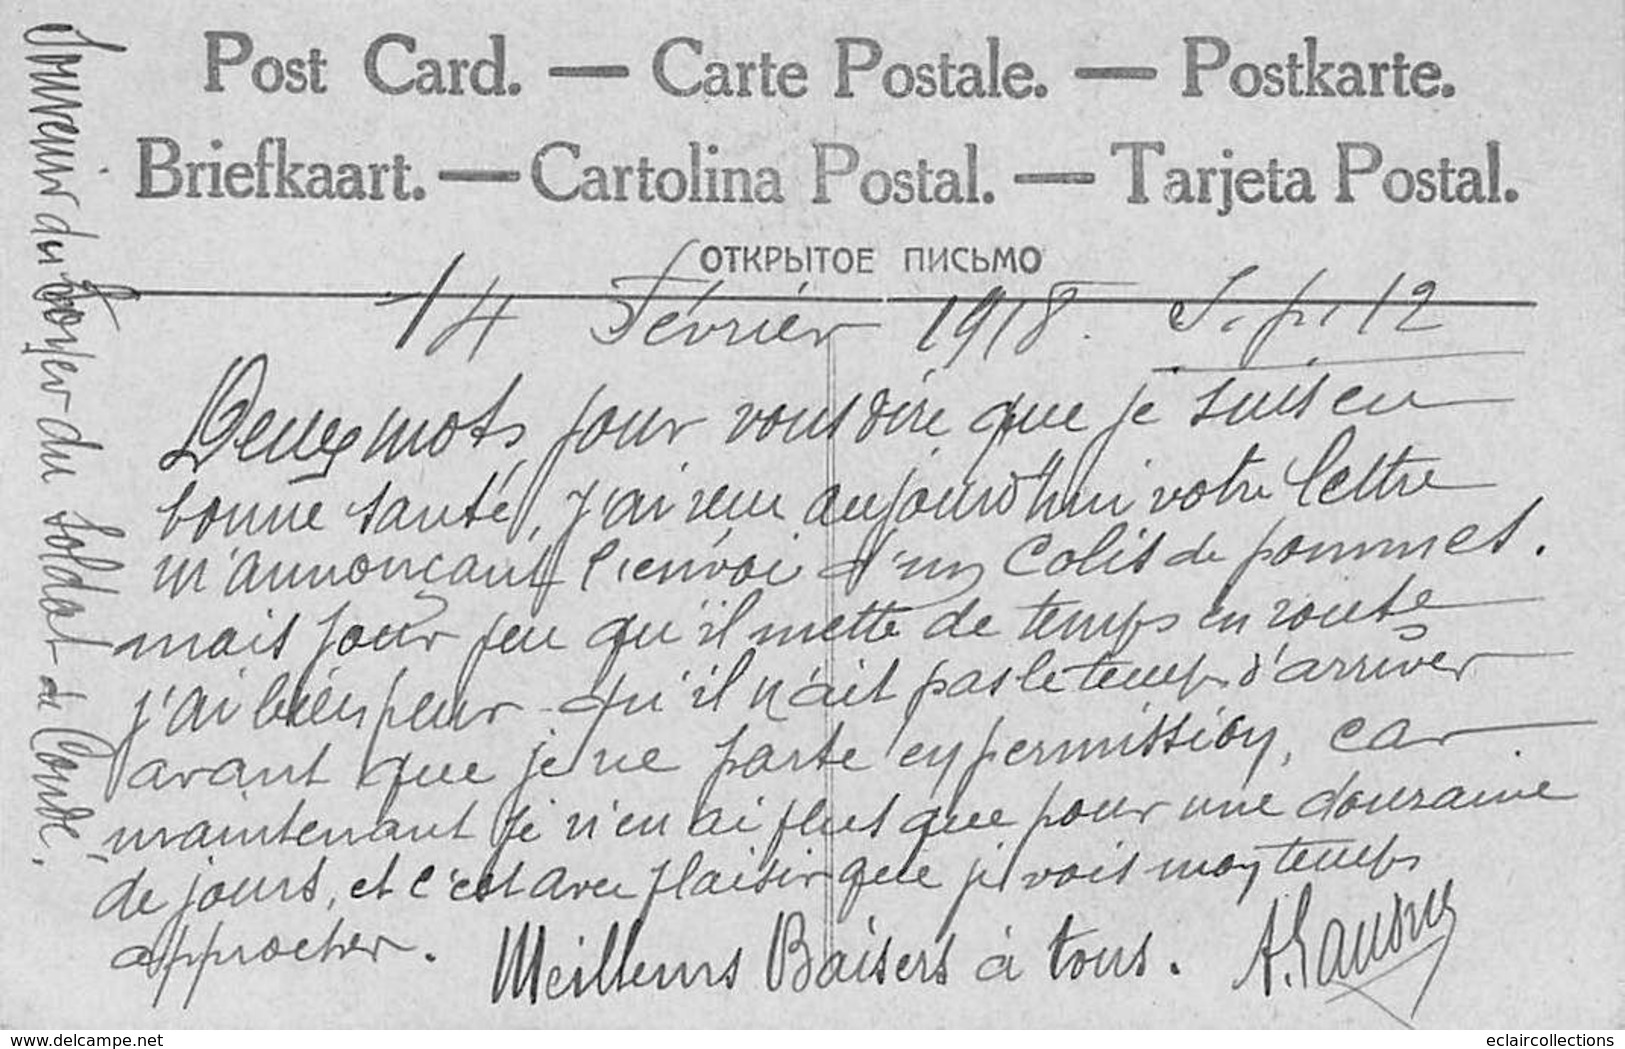 Post Card. — Carte Postale. — Postkarte.
Briefkaart. — Cartolina Postal. — Tarjeta Postal.
ОТКРЫТОЕ ПИСЬМО
14 Février 1918. S. p. 12
Deux mots, pour vous dire que je suis en
bonne santé, j'ai reçu aujourd'hui votre lettre
m'annonçant l'envoi d'un colis de pommes.
mais pour peu qu'il mette de temps en route
j'ai bien peur qu'il n'ait pas le temps d'arriver
avant que je ne parte en permission, car
maintenant je n'en ai plus que pour une douzaine
de jours, et c'est avec plaisir que je vois mon temps
approcher. Meilleurs Baisers à tous.
Souvenir du Foyer du Soldat de Condé.
delcampe.net
eclaircollections